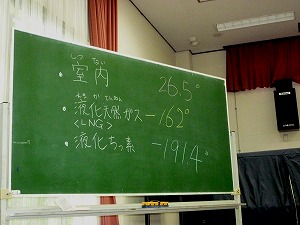 しつ ない
・室内 26.5°
えき か てんねん
・液化天然ガス -162°
<LNG>
・液化ちっ素 -191.4°